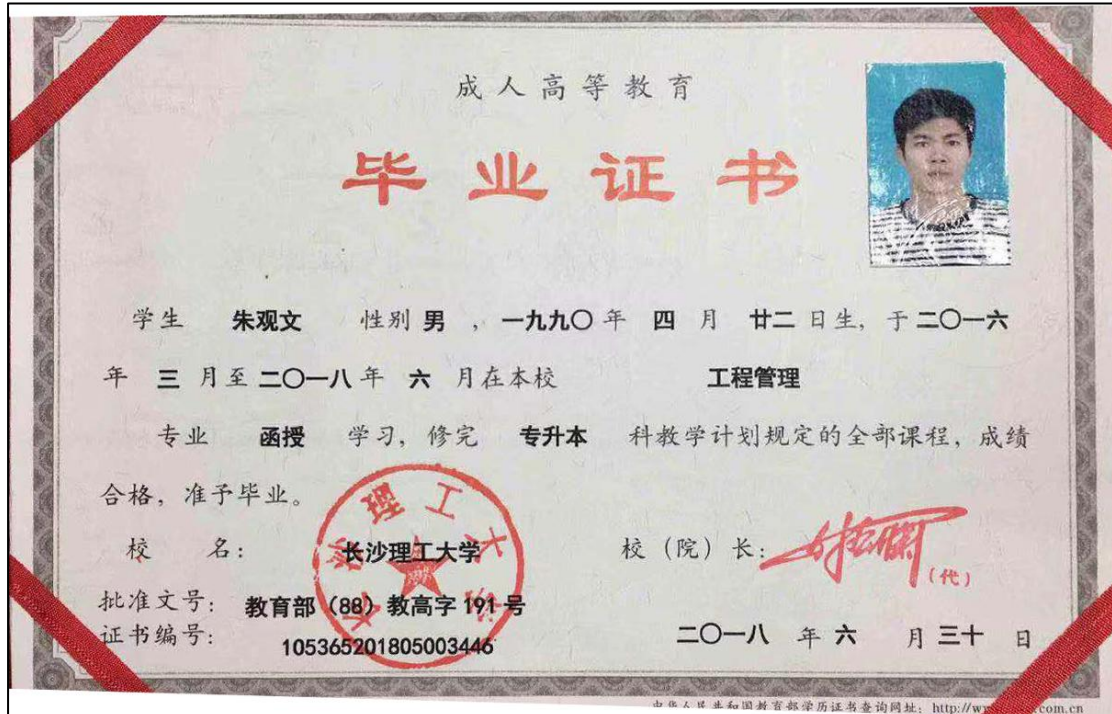 成人高等教育
毕业证书
学生 朱观文 性别 男 ,一九九〇年 四 月 廿二 日生, 于二〇一六
年 三 月至二〇一八年 六 月在本校 工程管理
专业 函授 学习, 修完 专升本 科教学计划规定的全部课程, 成绩
合格, 准予毕业。
长沙理工大学
校 名: 长沙理工大学 校(院)长:
(代)
批准文号: 教育部(88)教高字 191 号
证书编号: 105365201805003446 二〇一八 年 六 月 三十 日
中华人民共和国教育部学历证书查询网址: http://w com.cn